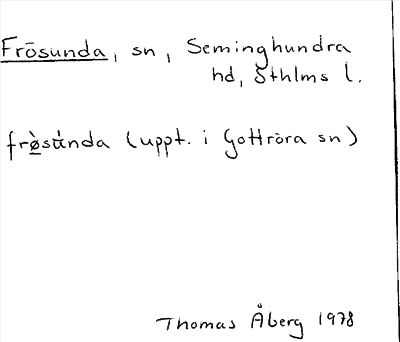 Frösunda, sn, Seminghundra
hd, Sthlms l.
frø̀su̇́nda (uppt. i Gottröra sn)
Thomas Åberg 1978